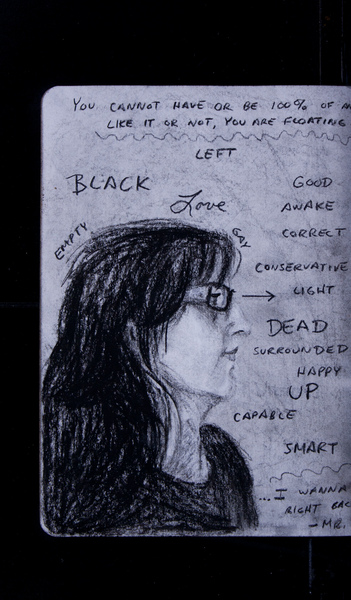 YOU CANNOT HAVE OR BE 100% OF
LIKE IT OR NOT, YOU ARE FLOATING
LEFT
BLACK
GOOD
Love
AWAKE
EMPTY
GAY
CORRECT
CONSERVATIVE
LIGHT
DEAD
SURROUNDED
HAPPY
UP
CAPABLE
SMART
...I WANNA
RIGHT
-MR.